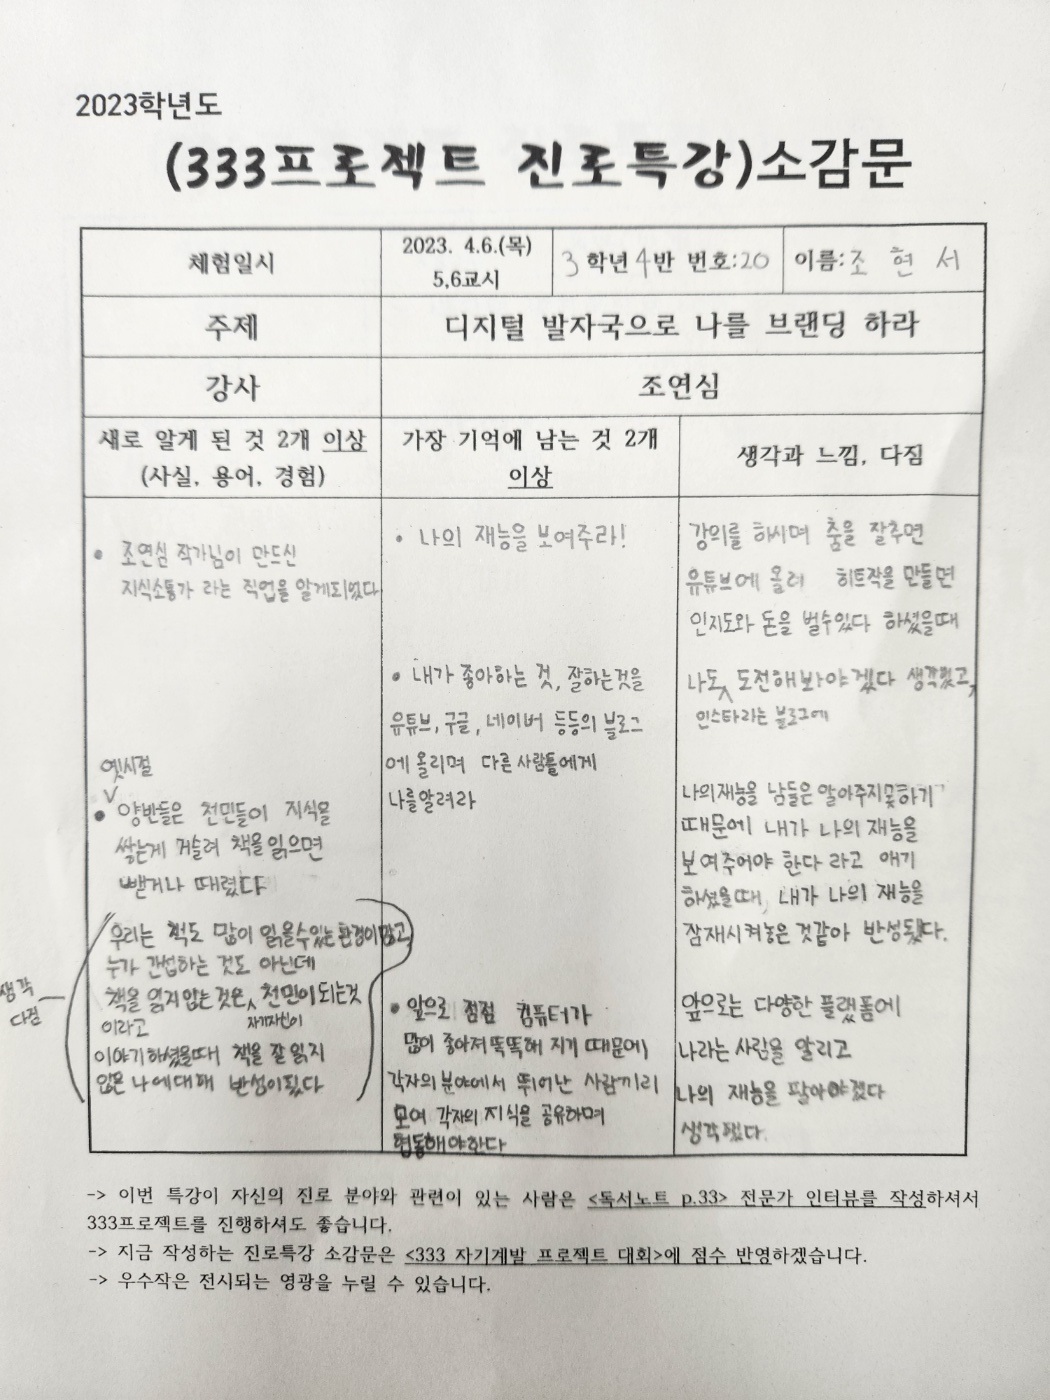 2023학년도
(333프로젝트 진로특강)소감문
체험일시
2023. 4.6.(목)
5,6교시
3 학년 4반 번호:20
이름: 조 현 서
주제
디지털 발자국으로 나를 브랜딩 하라
강사
조연심
새로 알게 된 것 2개 이상
(사실, 용어, 경험)
가장 기억에 남는 것 2개
이상
생각과 느낌, 다짐
• 조연심 작가님이 만드신
지식소통가 라는 직업을 알게되었다
옛시절
V
• 양반들은 천민들이 지식을
쌓는게 거슬려 책을 읽으면
뺏거나 때렸다
우리는 책도 많이 읽을수있는 환경이 많고,
누가 간섭하는 것도 아닌데
책을 읽지 않는 것은 천민이 되는것
자기자신이
이라고
이야기 하셨을때 책을 잘 읽지
않은 나에대해 반성이 됬다
생각
다짐
• 나의 재능을 보여주라!
• 내가 좋아하는 것, 잘하는것을
유튜브, 구글, 네이버 등등의 블로그
에 올리며 다른 사람들에게
나를 알려라
• 앞으로 점점 컴퓨터가
많이 좋아져 똑똑해 지기 때문에,
각자의 분야에서 뛰어난 사람끼리
모여 각자의 지식을 공유하며
협동해야한다
강의를 하시며 춤을 잘추면
유튜브에 올려 히트작을 만들면
인지도와 돈을 벌수있다 하셨을때
나도 도전해봐야겠다 생각했고,
인스타라는 블로그에
나의재능을 남들은 알아주지못하기
때문에 내가 나의 재능을
보여주어야 한다 라고 얘기
하셨을때, 내가 나의 재능을
잠재시켜놓은 것같아 반성됬다.
앞으로는 다양한 플랫폼에
나라는 사람을 알리고
나의 재능을 팔아야겠다
생각했다.
-> 이번 특강이 자신의 진로 분야와 관련이 있는 사람은 <독서노트 p.33> 전문가 인터뷰를 작성하셔서
333프로젝트를 진행하셔도 좋습니다.
-> 지금 작성하는 진로특강 소감문은 <333 자기계발 프로젝트 대회>에 점수 반영하겠습니다.
-> 우수작은 전시되는 영광을 누릴 수 있습니다.